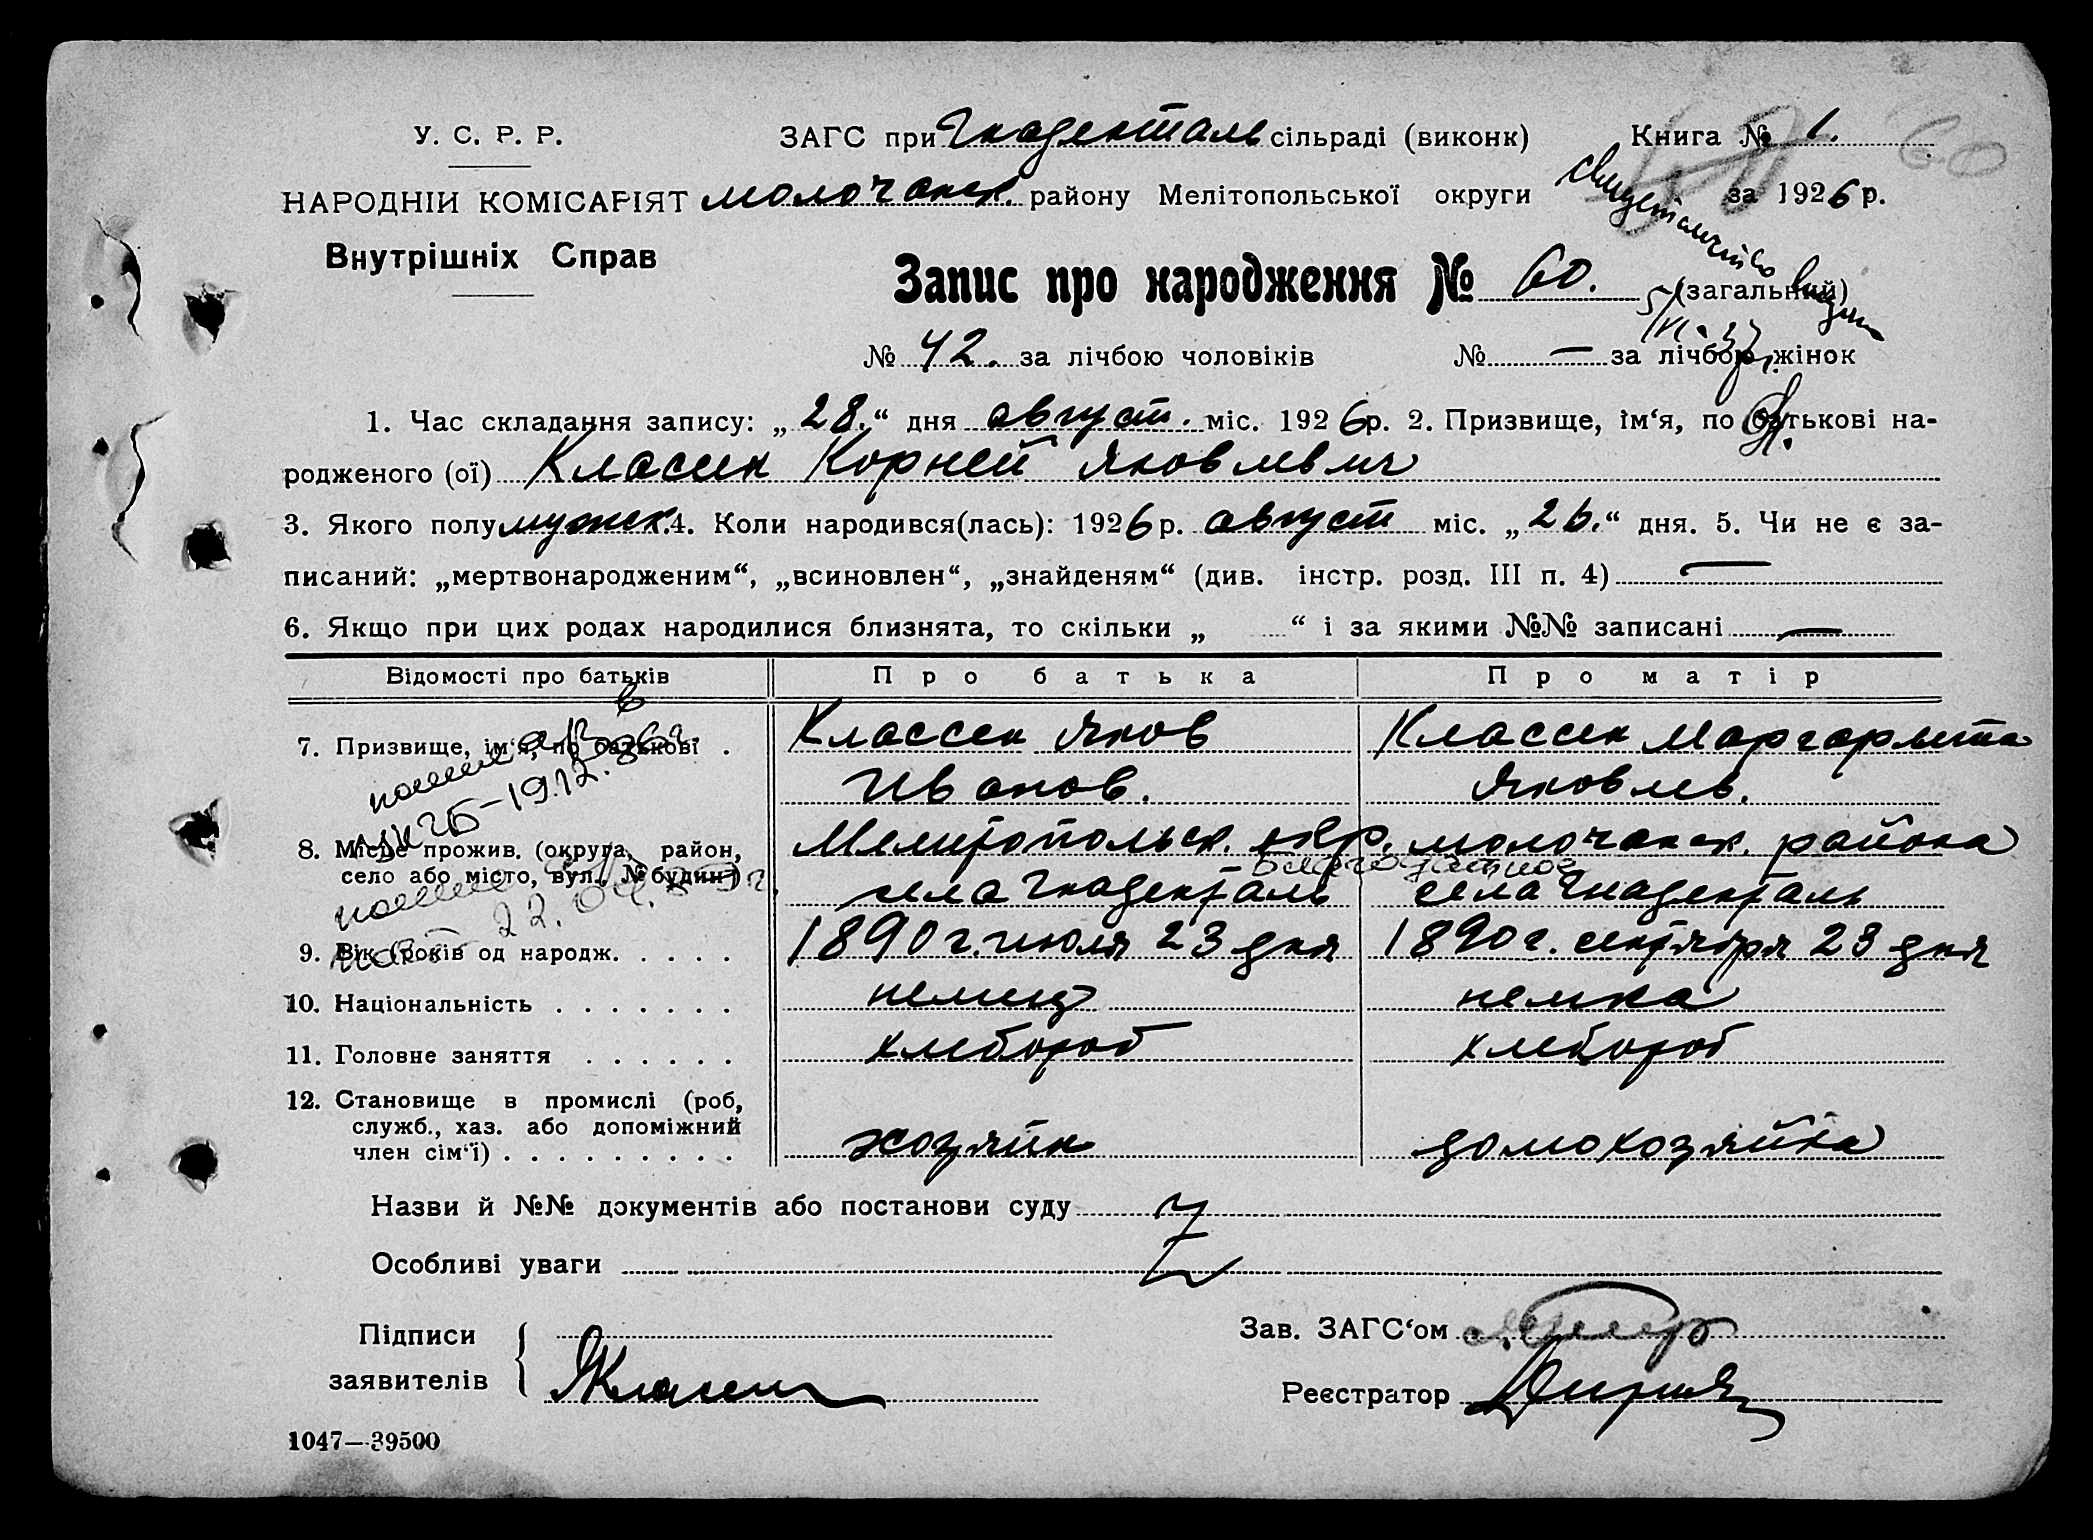 У. С. Р. Р. ЗАГС при Гнаденталь сільраді (виконк) Книга № 1. 60
НАРОДНІЙ КОМІСАРІЯТ молочанск. району Мелітопольської округи за 1926 р.
Внутрішніх Справ
Свидетельство
Запис про народження № 60. (загальний)
№ 42. за лічбою чоловіків № — за лічбою жінок
1. Час складання запису: „28.“ дня август. міс. 1926 р. 2. Призвище, ім‘я, по батькові на-
родженого (ої) Классен Корней Яковлевич
3. Якого полу мужск. 4. Коли народився(лась): 1926 р. август міс. „26.“ дня. 5. Чи не є за-
писаний: „мертвонародженим“, „всиновлен“, „знайденям“ (див. інстр. розд. III п. 4) —
6. Якщо при цих родах народилися близнята, то скільки „ “ і за якими №№ записані —
Відомості про батьків Про батька Про матір
7. Призвище, ім‘я, по батькові . Классен Яков Классен Маргарита
Иванов. Яковлев.
8. Місце прожив. (округа, район, Мелитопольск. окр. молочанск. района
село або місто, вул., № будин.) села Гнаденталь села Гнаденталь
9. Вік (років од народж. . . . . 1890 г. июля 23 дня 1890 г. сентября 23 дня
10. Національність . . . . . . . немец немка
11. Головне заняття . . . . . . хлебороб хлебороб
12. Становище в промислі (роб,
служб., хаз. або допоміжний
член сім‘ї) . . . . . . . . . хозяин домохозяйка
Назви й №№ документів або постанови суду
Особливі уваги
Підписи Зав. ЗАГС‘ом
заявителів ЯКлассен Реєстратор
1047—39500